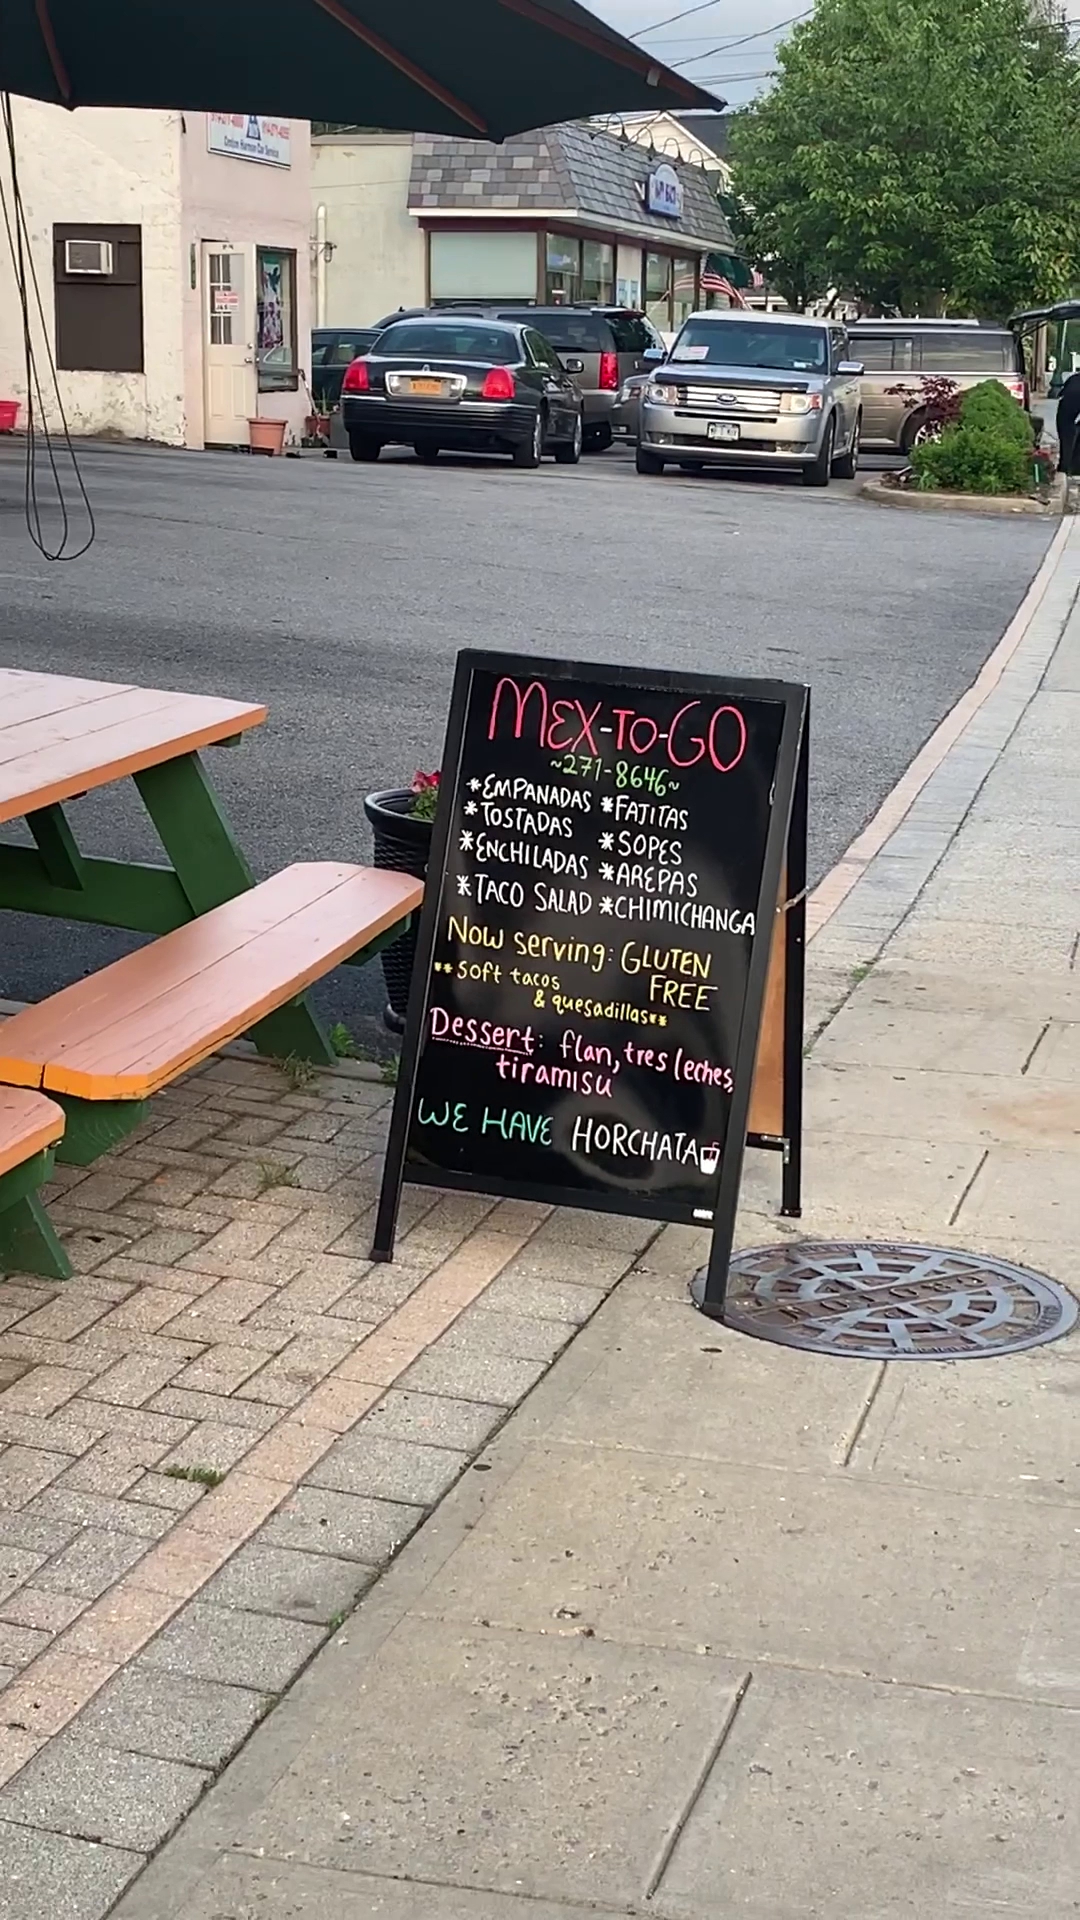 Croton Harmon Car Service
MEX-TO-GO
~271-8646~
*EMPANADAS *FAJITAS
*TOSTADAS *SOPES
*ENCHILADAS *AREPAS
*TACO SALAD *CHIMICHANGA
Now serving: GLUTEN FREE
**Soft tacos
& quesadillas**
Dessert: flan, tres leches,
tiramisu
WE HAVE HORCHATA